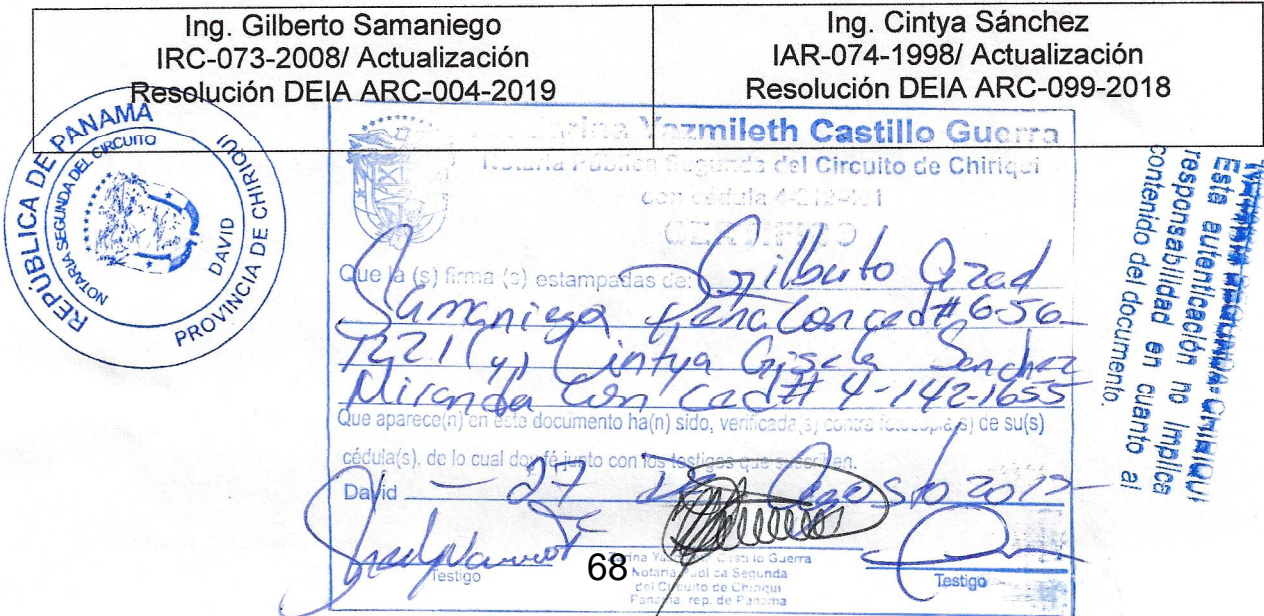 Ing. Gilberto Samaniego
IRC-073-2008/ Actualización
Resolución DEIA ARC-004-2019
Ing. Cintya Sánchez
IAR-074-1998/ Actualización
Resolución DEIA ARC-099-2018
REPUBLICA DE PANAMA
NOTARIA SEGUNDA DEL CIRCUITO
DAVID
PROVINCIA DE CHIRIQUI
Yazmileth Castillo Guerra
Notaria Pública Segunda del Circuito de Chiriquí
con cédula
CERTIFICO
Que la (s) firma (s) estampadas de: Gilberto
Samaniego con ced# 6-56-
(y) Cintya Gisela Sanchez
Miranda con ced# 4-142-1655
Que aparece(n) en este documento ha(n) sido, verificada(s) contra fotocopia(s) de su(s)
cédula(s), de lo cual doy fé junto con los testigos que suscriben.
David 27 De Agosto
Testigo
68
Castillo Guerra
Notaria Pública Segunda
del Circuito de Chiriqui
Panama, rep. de Panama
Testigo
NOTARIA SEGUNDA-CHIRIQUI
Esta autenticación no implica
responsabilidad en cuanto al
contenido del documento.